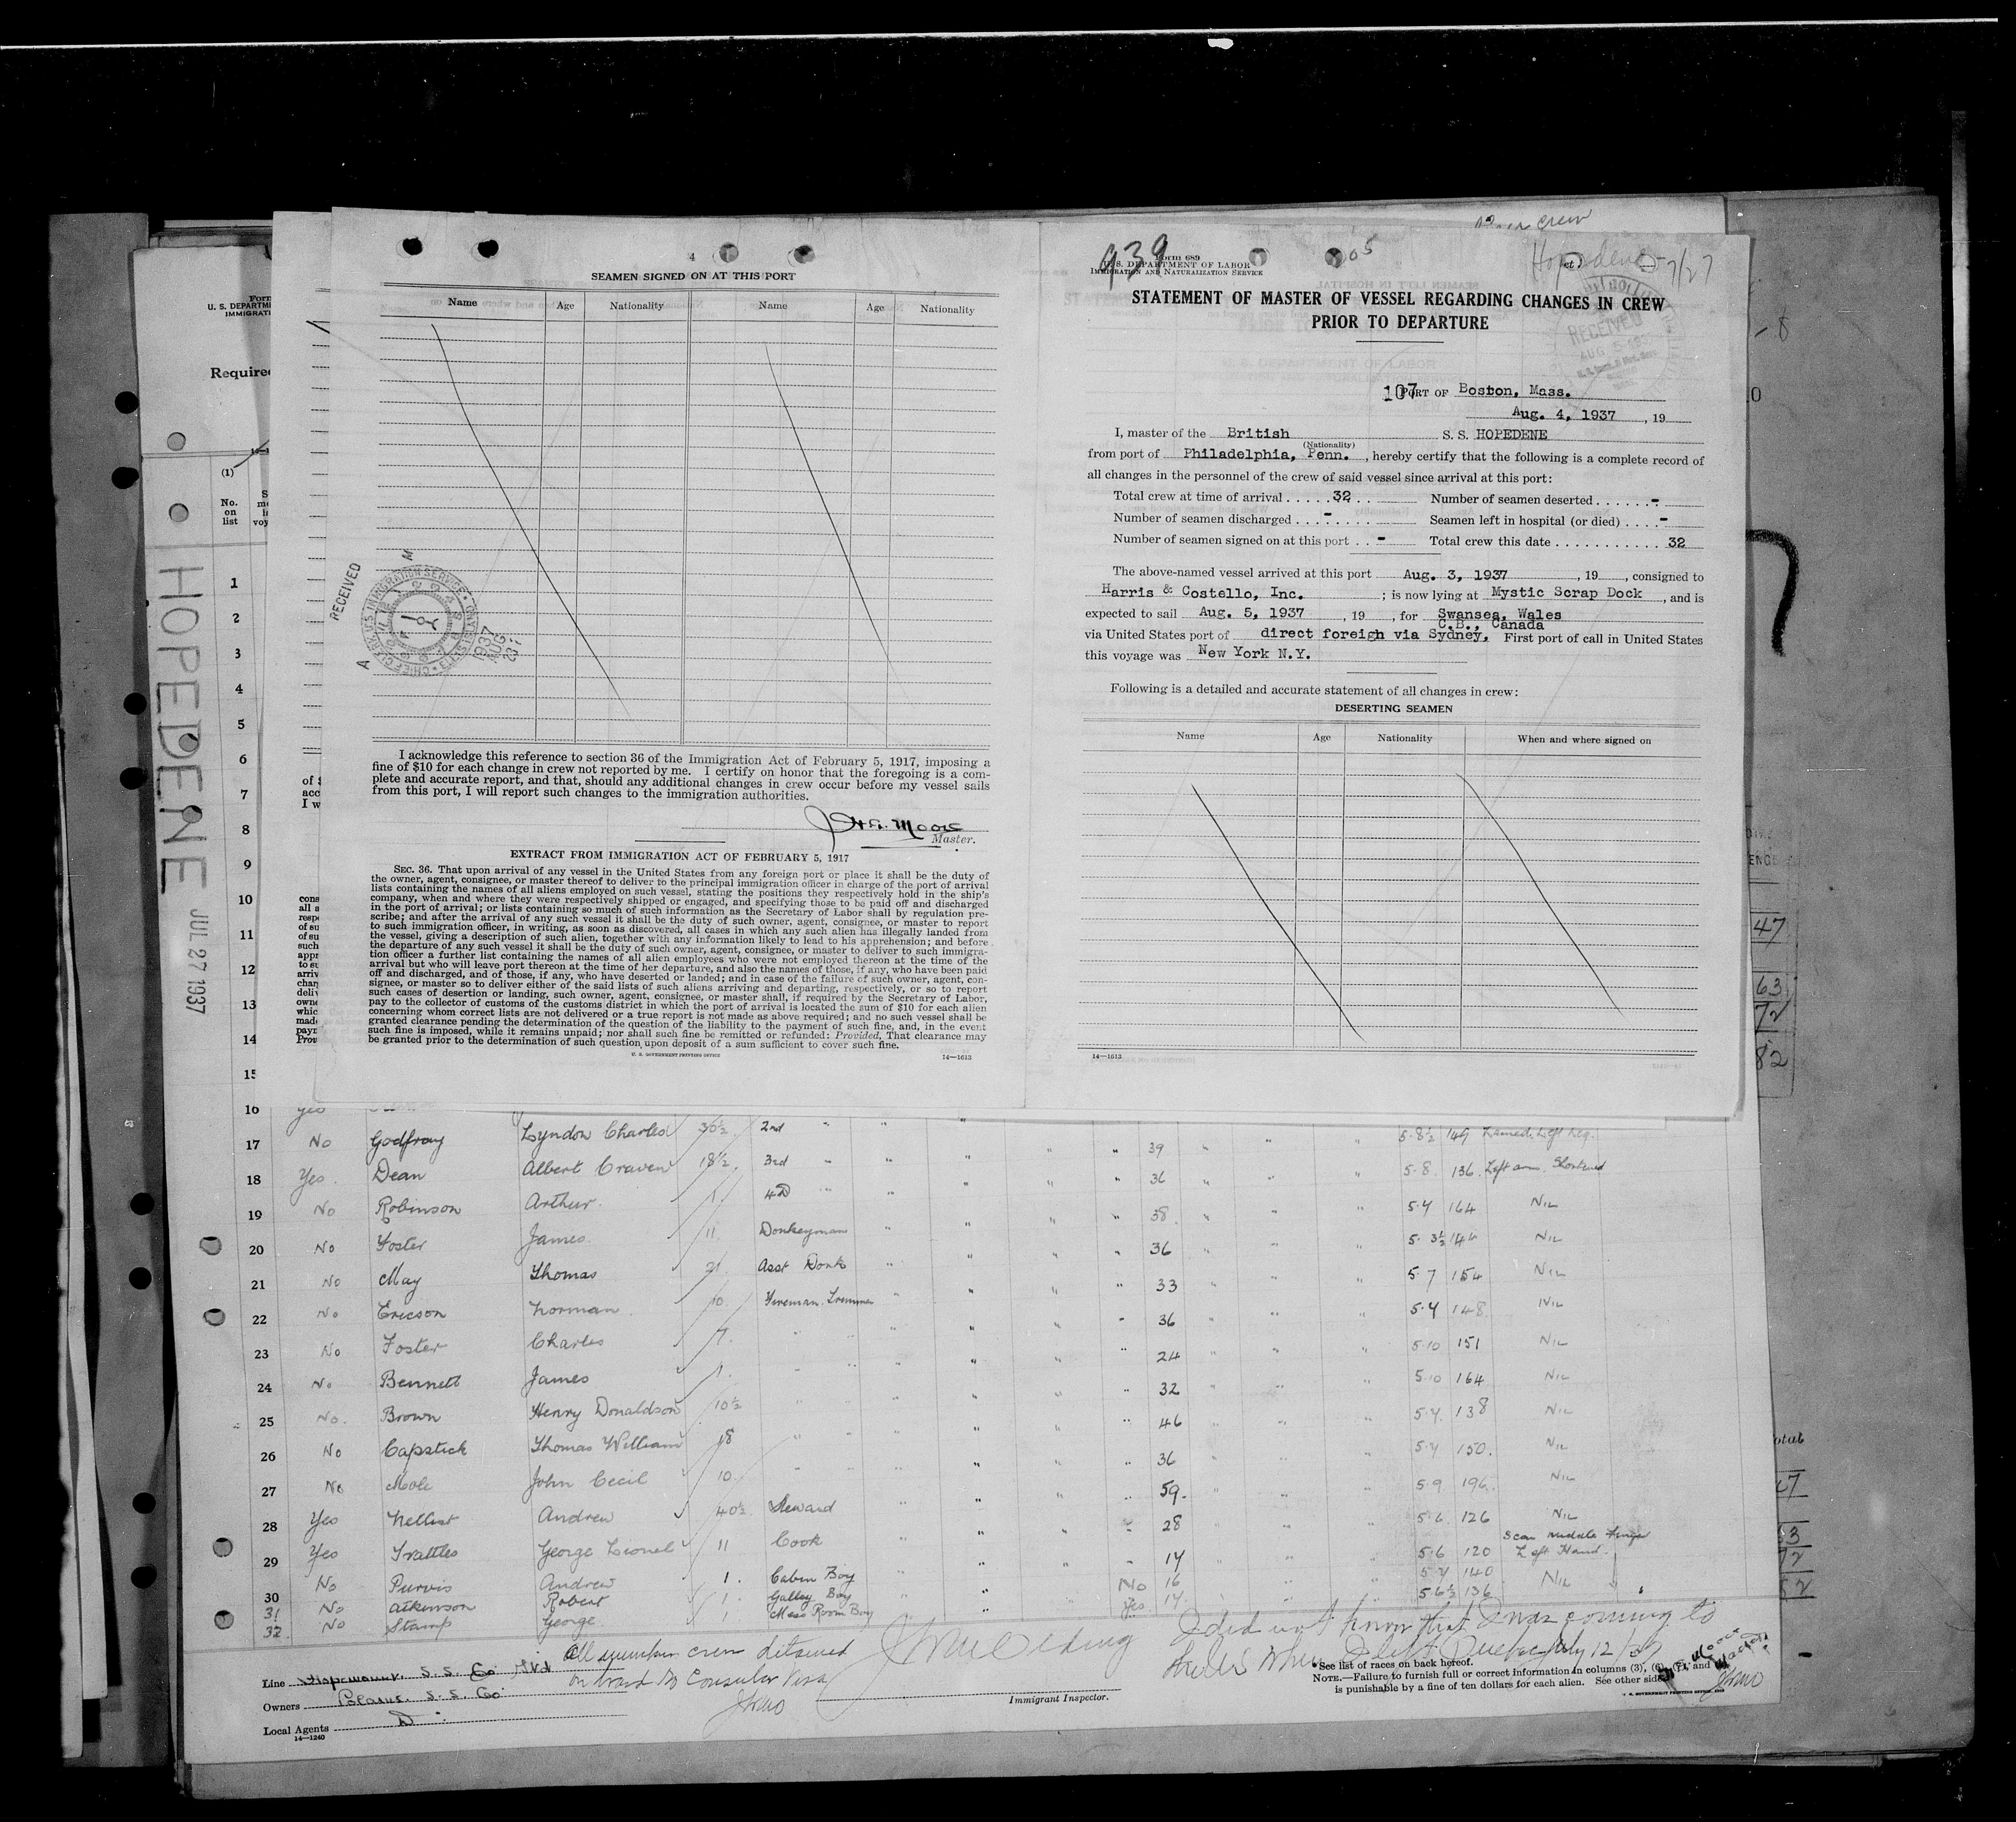 4
SEAMEN SIGNED ON AT THIS PORT
Name Age Nationality Name Age Nationality
RECEIVED
CHIEF CLERK U.S. IMMIGRATION SERVICE
1937 AUG
I acknowledge this reference to section 36 of the Immigration Act of February 5, 1917, imposing a
fine of $10 for each change in crew not reported by me. I certify on honor that the foregoing is a com-
plete and accurate report, and that, should any additional changes in crew occur before my vessel sails
from this port, I will report such changes to the immigration authorities.
Moore
Master.
EXTRACT FROM IMMIGRATION ACT OF FEBRUARY 5, 1917
SEC. 36. That upon arrival of any vessel in the United States from any foreign port or place it shall be the duty of
the owner, agent, consignee, or master thereof to deliver to the principal immigration officer in charge of the port of arrival
lists containing the names of all aliens employed on such vessel, stating the positions they respectively hold in the ship's
company, when and where they were respectively shipped or engaged, and specifying those to be paid off and discharged
in the port of arrival; or lists containing so much of such information as the Secretary of Labor shall by regulation pre-
scribe; and after the arrival of any such vessel it shall be the duty of such owner, agent, consignee, or master to report
to such immigration officer, in writing, as soon as discovered, all cases in which any such alien has illegally landed from
the vessel, giving a description of such alien, together with any information likely to lead to his apprehension; and before
the departure of any such vessel it shall be the duty of such owner, agent, consignee, or master to deliver to such immigra-
tion officer a further list containing the names of all alien employees who were not employed thereon at the time of the
arrival but who will leave port thereon at the time of her departure, and also the names of those, if any, who have been paid
off and discharged, and of those, if any, who have deserted or landed; and in case of the failure of such owner, agent, con-
signee, or master so to deliver either of the said lists of such aliens arriving and departing, respectively, or so to report
such cases of desertion or landing, such owner, agent, consignee, or master shall, if required by the Secretary of Labor,
pay to the collector of customs of the customs district in which the port of arrival is located the sum of $10 for each alien
concerning whom correct lists are not delivered or a true report is not made as above required; and no such vessel shall be
granted clearance pending the determination of the question of the liability to the payment of such fine, and, in the event
such fine is imposed, while it remains unpaid; nor shall such fine be remitted or refunded: Provided, That clearance may
be granted prior to the determination of such question upon deposit of a sum sufficient to cover such fine.
U. S. GOVERNMENT PRINTING OFFICE 14—1613
crew
939
Form 689
U. S. DEPARTMENT OF LABOR
IMMIGRATION AND NATURALIZATION SERVICE
Hopedene 7/27
STATEMENT OF MASTER OF VESSEL REGARDING CHANGES IN CREW
PRIOR TO DEPARTURE
RECEIVED
AUG 5
107
PORT OF Boston, Mass.
Aug. 4, 1937, 19
I, master of the British S. S. HOPEDENE
(Nationality)
from port of Philadelphia, Penn., hereby certify that the following is a complete record of
all changes in the personnel of the crew of said vessel since arrival at this port:
Total crew at time of arrival 32 Number of seamen deserted -
Number of seamen discharged - Seamen left in hospital (or died) -
Number of seamen signed on at this port - Total crew this date 32
The above-named vessel arrived at this port Aug. 3, 1937, 19, consigned to
Harris & Costello, Inc.; is now lying at Mystic Scrap Dock, and is
expected to sail Aug. 5, 1937, 19, for Swansea, Wales
C.B., Canada
via United States port of direct foreign via Sydney, First port of call in United States
this voyage was New York N.Y.
Following is a detailed and accurate statement of all changes in crew:
DESERTING SEAMEN
Name Age Nationality When and where signed on
14—1613
Form
U. S. DEPARTM
IMMIGRATI
Require
(1)
No. on list
HOPEDENE JUL 27 1937
1
2
3
4
5
6
7
8
9
10
11
12
13
14
15
16 Yes
17 No Godfray Lyndon Charles 30½ 2nd " " " " 39 " " " 5·8½ 149 Lamed Left Leg.
18 Yes. Dean Albert Craven 18½ 3rd " " " " 36 " " " 5·8. 136. Left arm Shortened
19 No Robinson Arthur. 1. " " " " 38. " " " 5·4 164 NIL
20 No Foster James. 11. Donkeyman " " " " 36 " " " 5·3½ NIL
21 No May Thomas 21. Asst Donk " " " " 33 " " " 5·7 154 NIL
22 No Ericson Norman. 10. Fireman. Trimmer " " " " 36 " " " 5·4 148. NIL
23 No Foster Charles 7. " " " " " " 24 " " " 5·10 151 NIL
24 No Bennett James 1. " " " " " " 32 " " " 5·10 164 NIL
25 No. Brown Henry Donaldson 10½ " " " " " " 46 " " " 5·4. 138 NIL
26 No Capstick Thomas William 18 " " " " " " 36 " " " 5·4 150. NIL
27 No Mole John Cecil 10. " " " " " " 59. " " " 5·9 196. NIL
28 Yes Nellist Andrew 40½ Steward " " " " 28 " " " 5·6. 126 NIL
29 Yes Trattles George Lionel 11 Cook " " " " 14 " " " 5·6 120 Scar middle finger Left Hand.
30 No Purvis Andrew 1. Cabin Boy " " No 16 5·4 140 NIL
31 No Atkinson Robert 1. Galley Boy " " Yes 17. 5·6½ 136
32. No Stamp George. 1 Mess Room Boy
All members crew detained
on board No Consular Visa
I did not know that I was coming to
when I left Quebec July 12/37
Line S. S. Co Ltd
Owners S. S. Co.
Local Agents
14—1240
Immigrant Inspector.
*See list of races on back hereof.
NOTE.—Failure to furnish full or correct information in columns (3), (6), (7), and
is punishable by a fine of ten dollars for each alien. See other side.
Moore
Master.
47
63
72
82